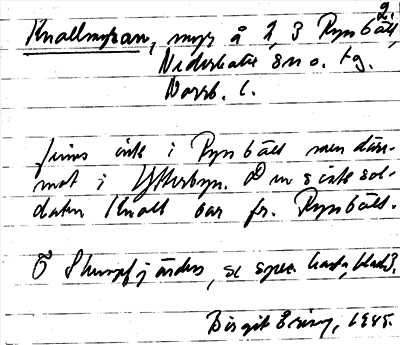 Knallmyran, myr å 2, 3 Rynbäck,
Nederkalix sn o. tg.
Norrb. l.
finns inte i Rynbäck men däre-
mot i Ytterbyn. Den siste sol-
daten Knall var fr. Rynbäck.
Ö Stumpfjärden, se spec. karta, blad 3.
Birgit 1945.